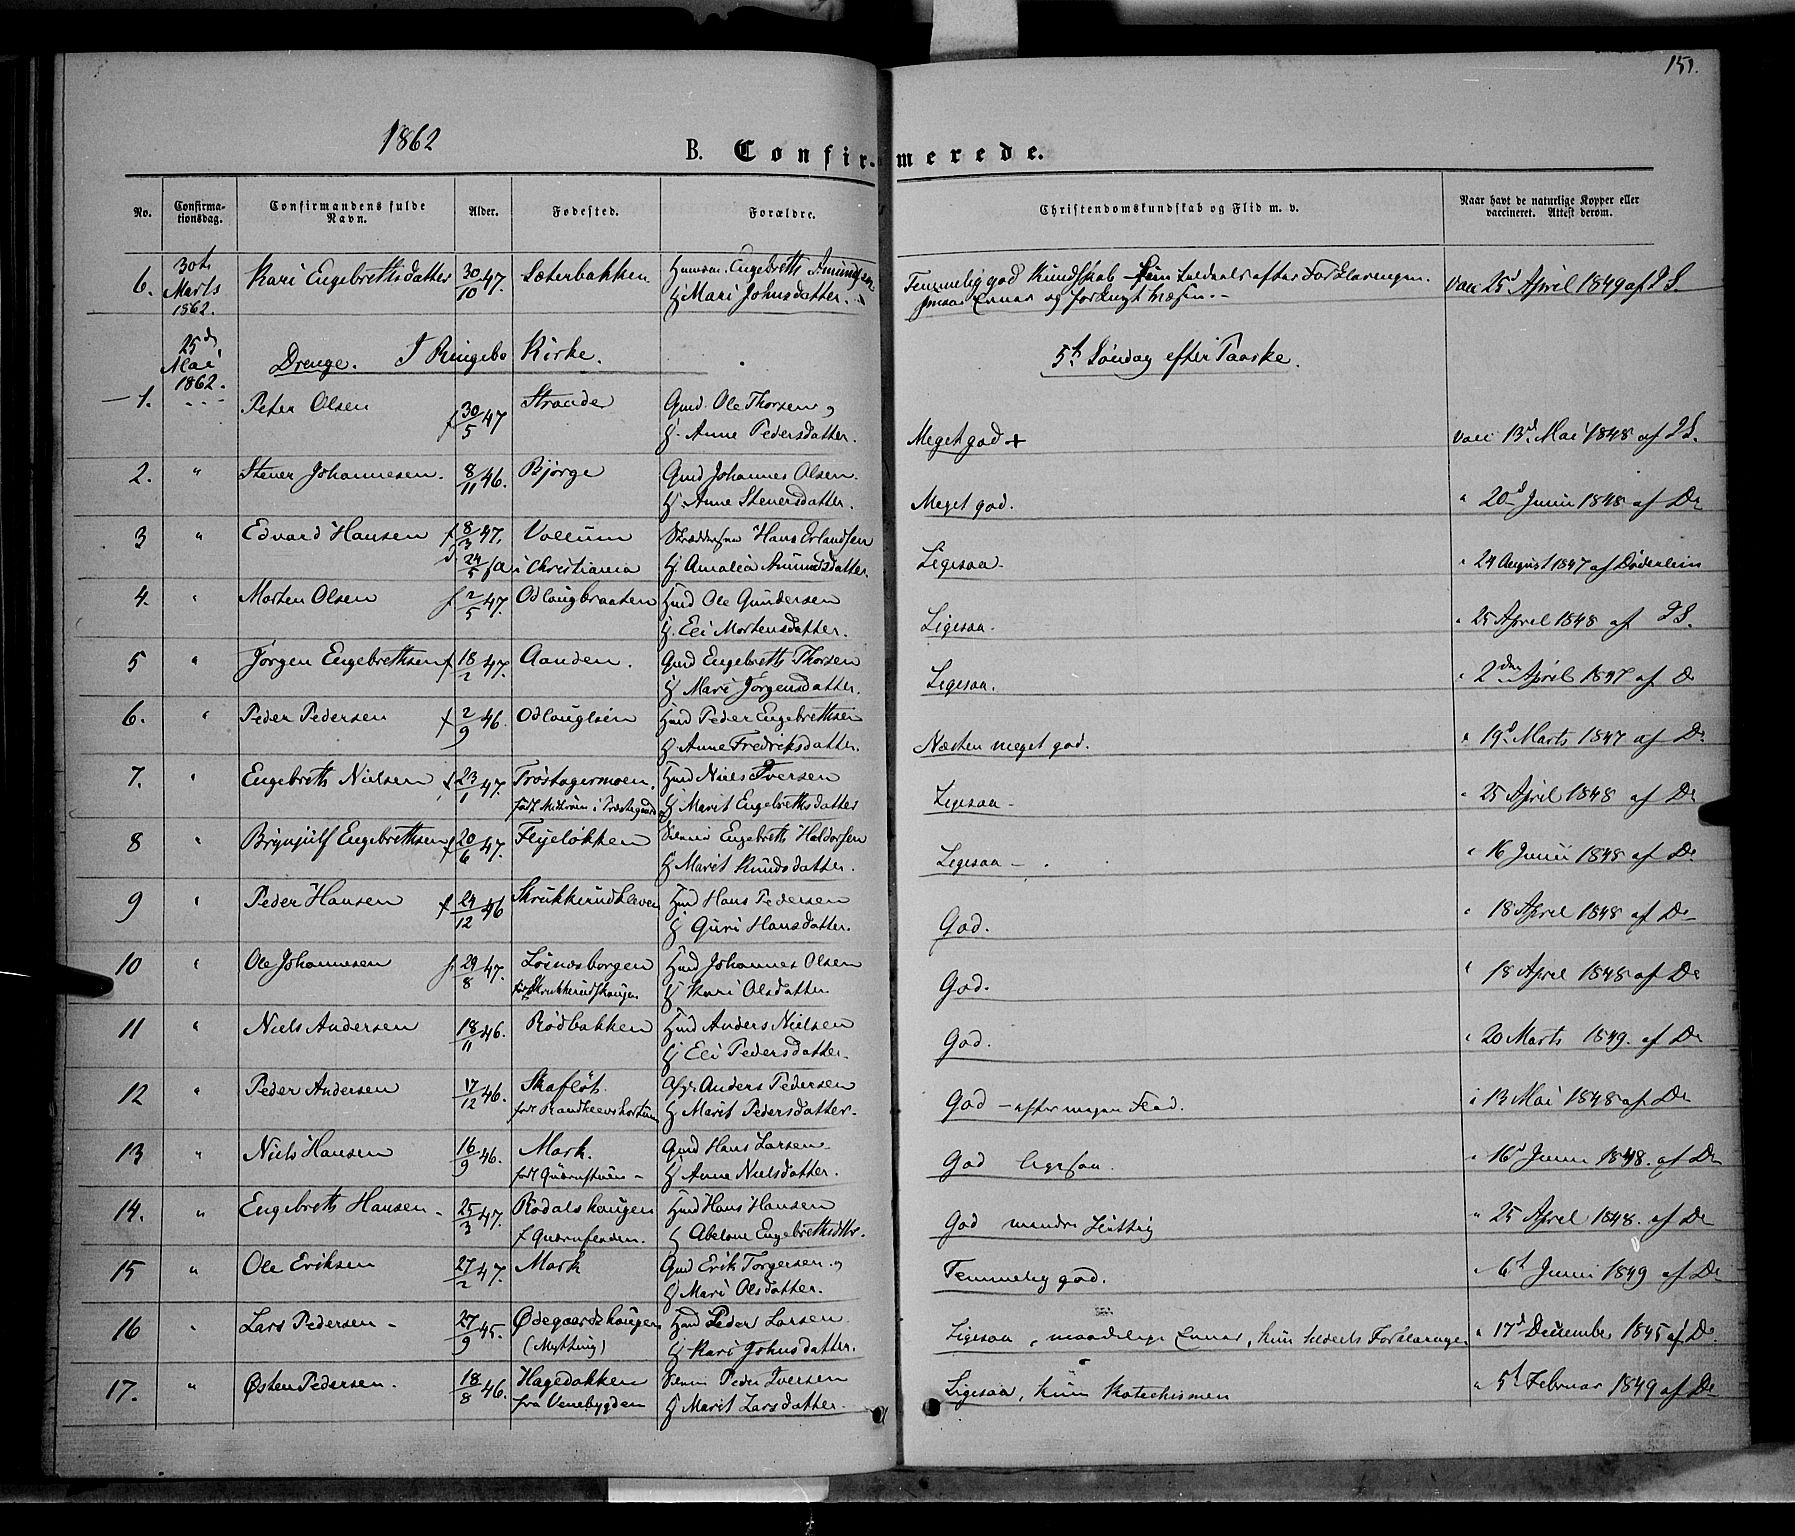 151.
1862
B. Confirmerede.
No. Confirmationsdag. Confirmandens fulde Navn. Alder. Fødested. Forældre. Christendomskundskab og Flid m. v. Naar havt de naturlige Kopper eller vaccineret. Attest derom.
6. 30te Marts 1862. Kari Engebrethsdatter 30/10 47. Sæterbakken. Engebreth Amundsen Temmelig god Kundskab vacc 25d April 1849 af
Hj Mari Johnsdatter. og
25d Mai 1862. Drenge. I Ringebo Kirke. 5te Søndag efter Paaske.
1. Peter Olsen f 30/5 47 Strande Gmd. Ole Thorsen og
Hj. Anne Pedersdatter. Meget god + vacc 13d Mai 1848 af
2. " Stener Johannesen. 8/11 46. Bjørge Gmd Johannes Olsen.
Hj. Anne Stenersdatter. Meget god. " 20d Junii 1848 af Do
3 " Edvard Hansen f 8/3 47. Vollum Hans Erlandsen
d. 24/5 i Christiania Hj. Amalia Amundsdatter. Ligesaa. " 24 August 1847 af Døderlein
4. " Morten Olsen f 2/5 47. Odlougbraaten Hmd Ole Gundersen
Hj. Eli Mortensdatter. Ligesaa. " 25 April 1848 af
5 " Jørgen Engebrethsen f 18/2 47. Aanden. Gmd Engebreth Thorsen
Hj Mari Jørgensdatter. Ligesaa. " 2den April 1847 af Do
6. " Peder Pedersen f 2/9 46. Odlouglien Hmd Peder Engebrethsen
Hj. Anne Fredriksdatter. Næsten meget god. " 19d Marts 1847 af Do
7. " Engebreth Nielsen f 23/1 47. Trøstagermoen. Hmd Niels Iversen
Hj Marit Engebrethsdatter Ligesaa " 25 April 1848 af Do
8 " Brynjulf Engebrethsen f 20/6 47. Flyeløkken Engebreth Haldorsen
Hj Marit Knudsdatter. Ligesaa " 16 Junii 1848 af Do
9 " Peder Hansen f 24/12 46 Skrukkerudkleven Hmd Hans Pedersen
Hj Guri Hansdatter. God. " 18 April 1848 af Do
10 " Ole Johannesen f. 29/8 47. Løsnæsborgen Hmd Johannes Olsen
Hj Kari Olsdatter God. " 18 April 1848 af Do
11 " Niels Andersen 18/11 46. Rødbakken Hmd Anders Nielsen
Hj Eli Pedersdatter. God. " 20 Marts 1849. af Do
12 " Peder Andersen 17/12 46. Skafløt. Anders Pedersen
Hj Marit Pedersdatter. God - efter megen Flid. " 13 Mai 1848 af Do
13 " Niels Hansen 16/9 46. Mork. Gmd Hans Larsen
Hj Anne Nielsdatter. God ligesaa. " 16d Junii 1848. af Do
14. " Engebreth Hansen 25/3 47. Rodalshougen Hmd Hans Hansen
Hj Abelone Engebrethsdtr. God mindre flittig " 25 April 1848. af Do
15 " Ole Eriksen 27/2 47. Mork Gmd Erik Torgersen og
Hj Mari Olsdatter. Temmelig god. " 6te Junii 1849 af Do
16 " Lars Pedersen 27/9 45. Ødegaardshougen Hmd Peder Larsen
(Mytting) Hj Kari Johnsdatter. Ligesaa, maadelige Evner, kun Forklaringen " 17d December 1845 af Do
17. " Østen Pedersen. 18/8 46. Hagebakken Peder Iversen
fra Venebygden Hj Marit Larsdatter. Ligesaa, kun Katechismen " 5te Februar 1849 af Do